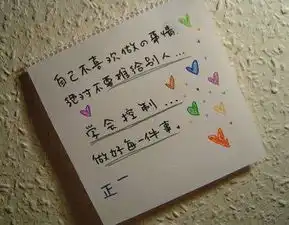 自己不喜欢做の事情
绝对不要推给别人...
学会控制...
做好每一件事.
正一